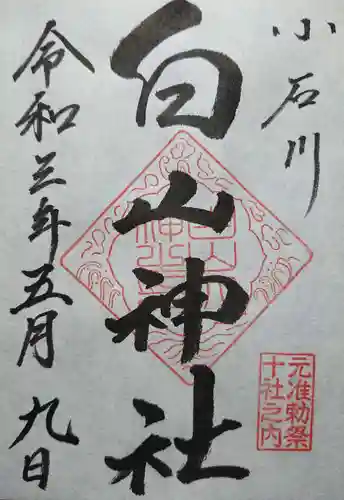 小石川
白山神社
元准勅祭
十社之内
令和三年五月九日